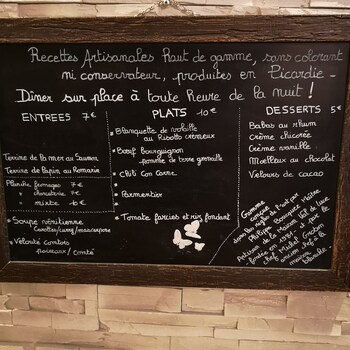 Recettes Artisanales haut de gamme, sans colorant
ni conservateur, produites en Picardie -
Dîner sur place à toute heure de la nuit !
ENTREES 7€
Terrine de la mer au Saumon
Terrine de lapin au Romarin
Planche fromages 7€
" charcuterie 7€
" mixte 10€
- Soupe vénitienne
Carottes/curry/mascarpone
- Velouté comtois
poireaux/comté
PLATS 10€
- Blanquette de volaille
au Risotto crémeux
- Bœuf Bourguignon
pomme de terre grenaille
- Chili Con Carne
- Parmentier
- Tomate farcies et riz fondant
DESSERTS 5€
Babas au rhum
Crème chicorée
Crème vanille
Moelleux au chocolat
Velours de cacao
Gamme
conçue
dans les règles de l'art par
Philippe Maître
Artisan de la Maison
fondée en et par
chef Michel
ancien chef à la
maison
blanche.